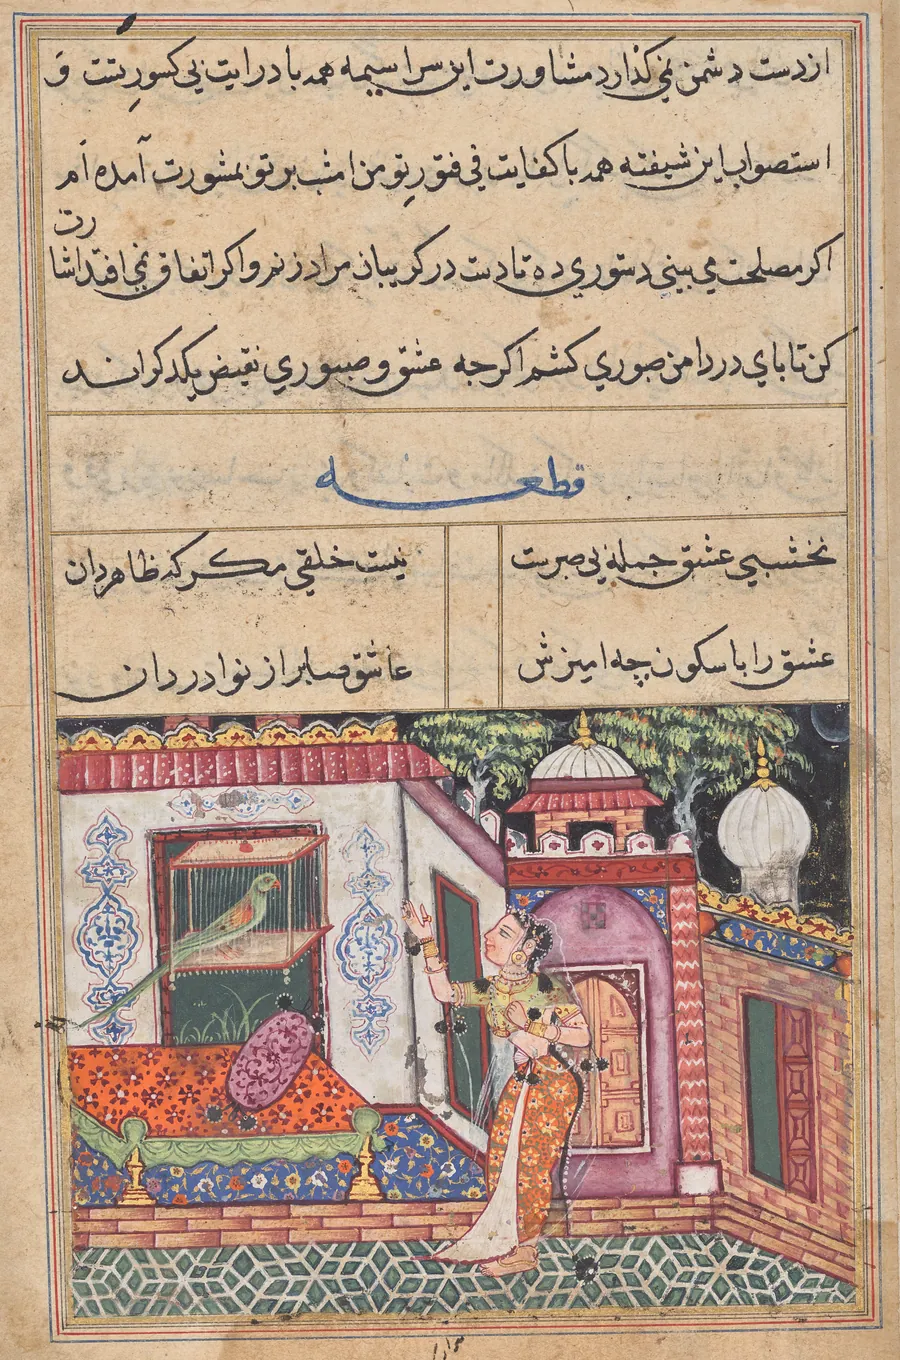 از دست دشمن نمي كذارد مشاورت اين سراسيمه همه با درايت بي كسور تست و
استصواب اين شيفته همه با كفايت بي فتور تو من امشب بر تو بمشورت آمده ام
اكر مصلحت مي بيني دستوري ده تا دست در كريبان مراد زنم و اكر اتفاق نمي افتد اشارت
كن تا پاي در دامن صبوري كشم اكرچه عشق و صبوري نقيض يكدكراند
قطعه
نخشبي عشق جمله بي صبريست نيست خلقي مكر كه ظاهر دان
عشق را با سكون چه اميزش عاشق صابر از نوادر دان